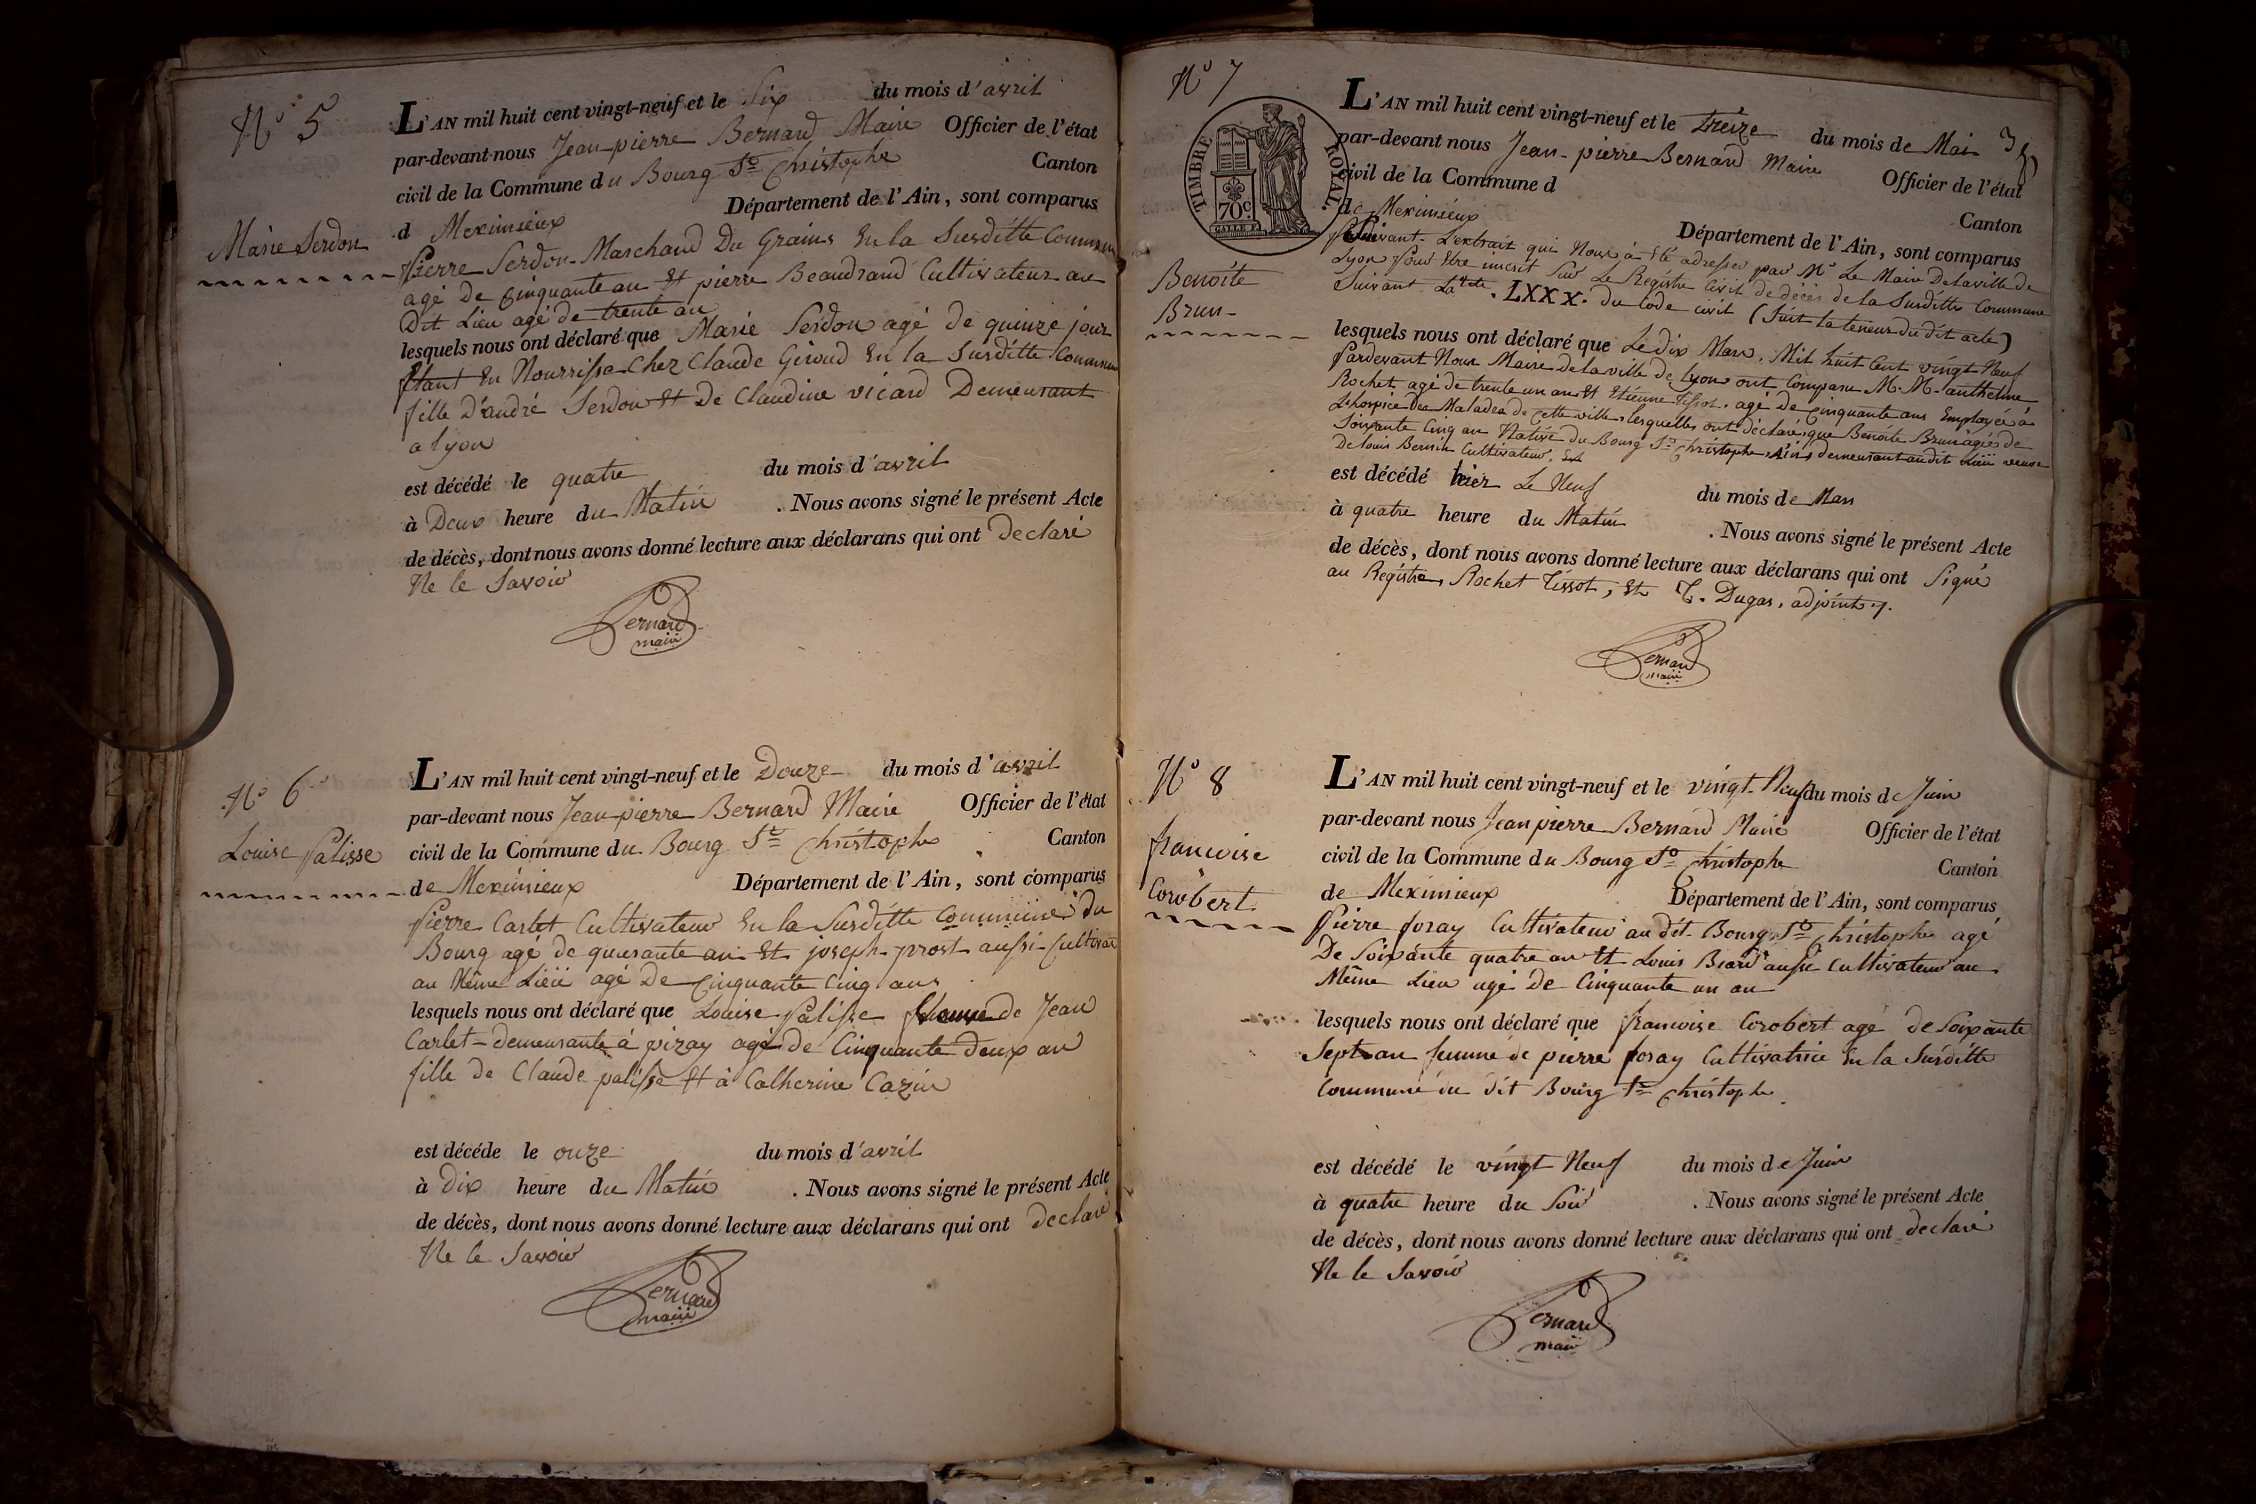 Nº 5
L'AN mil huit cent vingt-neuf et le Six du mois d'avril
par-devant nous Jean-pierre Bernard Maire Officier de l'état
civil de la Commune du Bourg St Christophe Canton
d Meximieux Département de l'Ain, sont comparus
Marie Serdon
Pierre Serdon Marchand Du Grains En la Susditte Commune
agé de Cinquante an Et pierre Beaudrand Cultivateur au
Dit Lieu agé de trente an
lesquels nous ont déclaré que Marie Serdon agé de quinze jour
Etant En Nourrisse Chez Claude Giroud En la Susditte Commune
fille D'andré Serdon Et De Claudine vicard Demeurant
a Lyon
est décédé le quatre du mois d'avril
à Deux heure du Matin . Nous avons signé le présent Acte
de décès, dont nous avons donné lecture aux déclarans qui ont Declaré
Ne le Savoir
Bernard
maire
Nº 6
L'AN mil huit cent vingt-neuf et le Douze du mois d'avril
par-devant nous Jean-pierre Bernard Maire Officier de l'état
Louise Palisse
civil de la Commune du Bourg St Christophe Canton
de Meximieux Département de l'Ain, sont comparus
Pierre Carlet Cultivateur En la Susditte Commune du
Bourg agé de quarante an Et joseph prost aussi Cultivat
au Même Lieu agé De Cinquante Cinq ans
lesquels nous ont déclaré que Louise Palisse de Jean
Carlet demeurante à pizay agé de Cinquante deux an
fille de Claude palisse Et à Catherine Cazin
est décéde le onze du mois d'avril
à Dix heure du Matin . Nous avons signé le présent Acte
de décès, dont nous avons donné lecture aux déclarans qui ont declaré
Ne le Savoir
Bernard
maire
Nº 7
TIMBRE ROYAL
70 c
L'AN mil huit cent vingt-neuf et le treize du mois de Mai
par-devant nous Jean-pierre Bernard Maire Officier de l'état
civil de la Commune d Canton
de Meximieux Département de l'Ain, sont comparus
Benoite
Brun
Suivant L'extrait qui Nous à Eté adressé par Mr Le Maire De la ville de
Lyon pour Etre inscrit Sur Le Registre Civil de décès de la Susditte Commune
Suivant . LXXX. du Code civil (Suit la teneur du dit acte)
lesquels nous ont déclaré que Le dix Mars, Mil huit Cent vingt Neuf
Pardevant Nous Maire de la ville de Lyon ont Comparu M. M. anthelme
Rochet agé de trente un an Et Etienne Tissot, agé de Cinquante ans Employés à
L'hospice Des Malades de cette ville Lesquelles ont déclaré que Benoite Brun agée de
Soixante Cinq an Native du Bourg St Christophe, Ain, demeurant au dit Lieu veuve
De Louis Bernin Cultivateur. Est
est décédé hier Le Neuf du mois de Mars
à quatre heure du Matin . Nous avons signé le présent Acte
de décès, dont nous avons donné lecture aux déclarans qui ont Signé
au Registre, Rochet Tissot, Et T. Dugas, adjoint
Bernard
maire
Nº 8
L'AN mil huit cent vingt-neuf et le vingt Neuf du mois de Juin
par-devant nous Jean pierre Bernard Maire Officier de l'état
francoise
Corobert
civil de la Commune du Bourg St Christophe Canton
de Meximieux Département de l'Ain, sont comparus
Pierre foray Cultivateur au dit Bourg St Christophe agé
De Soixante quatre an Et Louis Biard aussi Cultivateur au
Même Lieu agé De Cinquante un an
lesquels nous ont déclaré que francoise Corobert agé de Soixante
Sept an femme de pierre foray Cultivatrice En la Susditte
Commune du dit Bourg St Christophe
est décédé le vingt Neuf du mois de Juin
à quatre heure du Soir . Nous avons signé le présent Acte
de décès, dont nous avons donné lecture aux déclarans qui ont declaré
Ne le Savoir
Bernard
maire